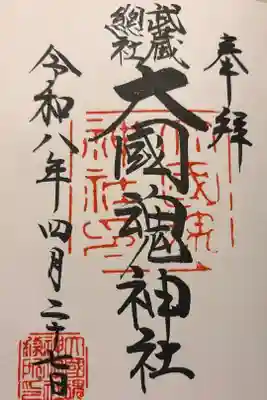 奉拝
武蔵
總社
大國魂神社
令和八年四月二十七日